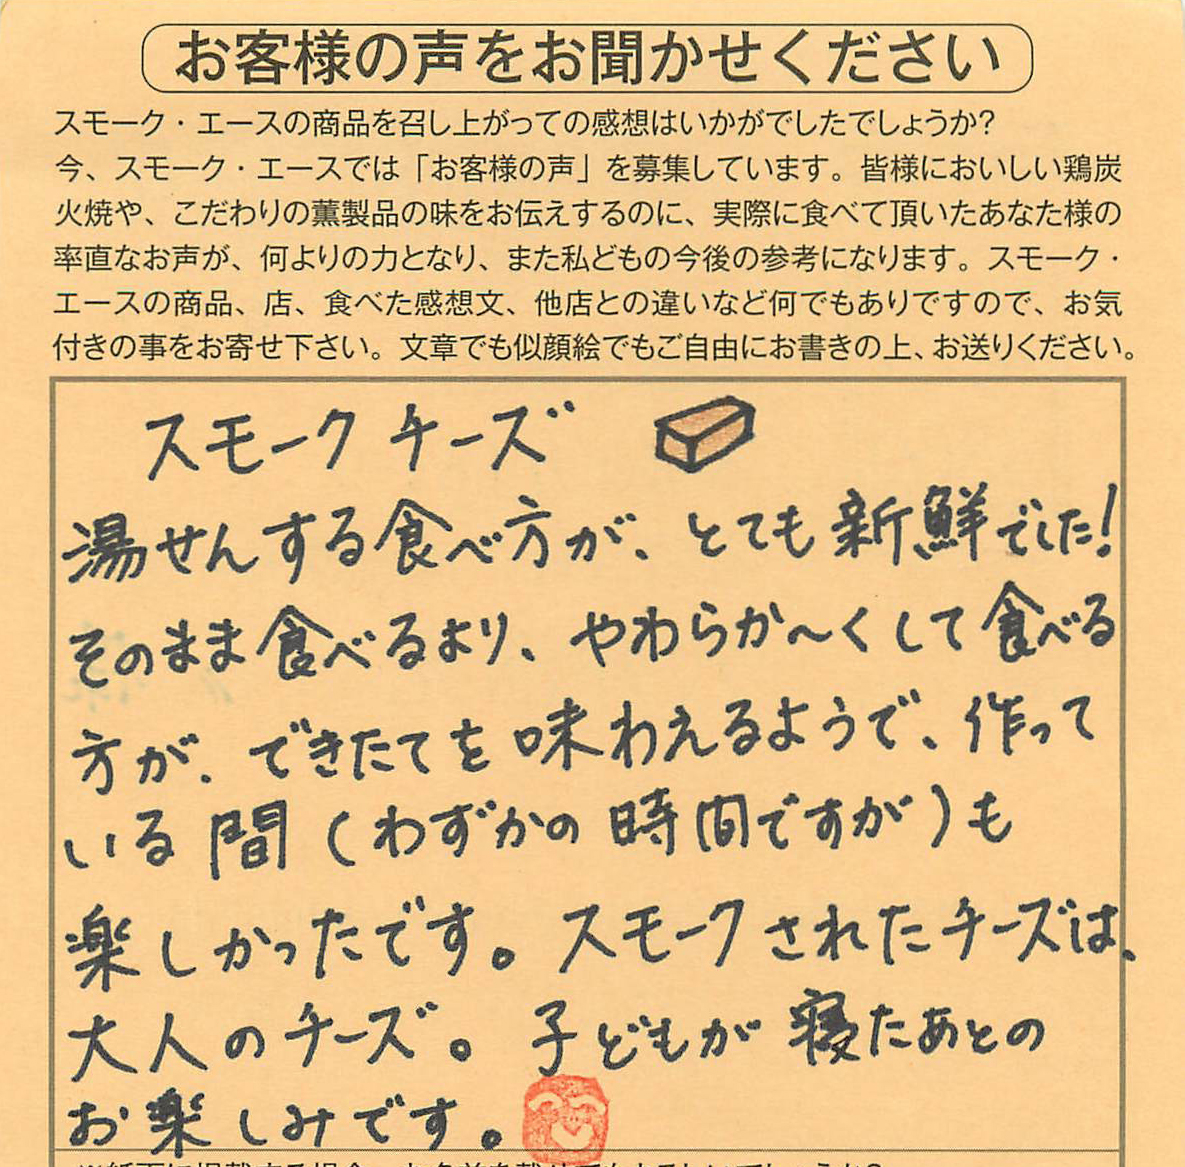 お客様の声をお聞かせください
スモーク・エースの商品を召し上がっての感想はいかがでしたでしょうか?
今、スモーク・エースでは「お客様の声」を募集しています。皆様においしい鶏炭
火焼や、こだわりの薫製品の味をお伝えするのに、実際に食べて頂いたあなた様の
率直なお声が、何よりの力となり、また私どもの今後の参考になります。スモーク・
エースの商品、店、食べた感想文、他店との違いなど何でもありですので、お気
付きの事をお寄せ下さい。文章でも似顔絵でもご自由にお書きの上、お送りください。
スモークチーズ
湯せんする食べ方が、とても新鮮でした!
そのまま食べるより、やわらか〜くして食べる
方が、できたてを味わえるようで、作って
いる間(わずかの時間ですが)も
楽しかったです。スモークされたチーズは、
大人のチーズ。子どもが寝たあとの
お楽しみです。